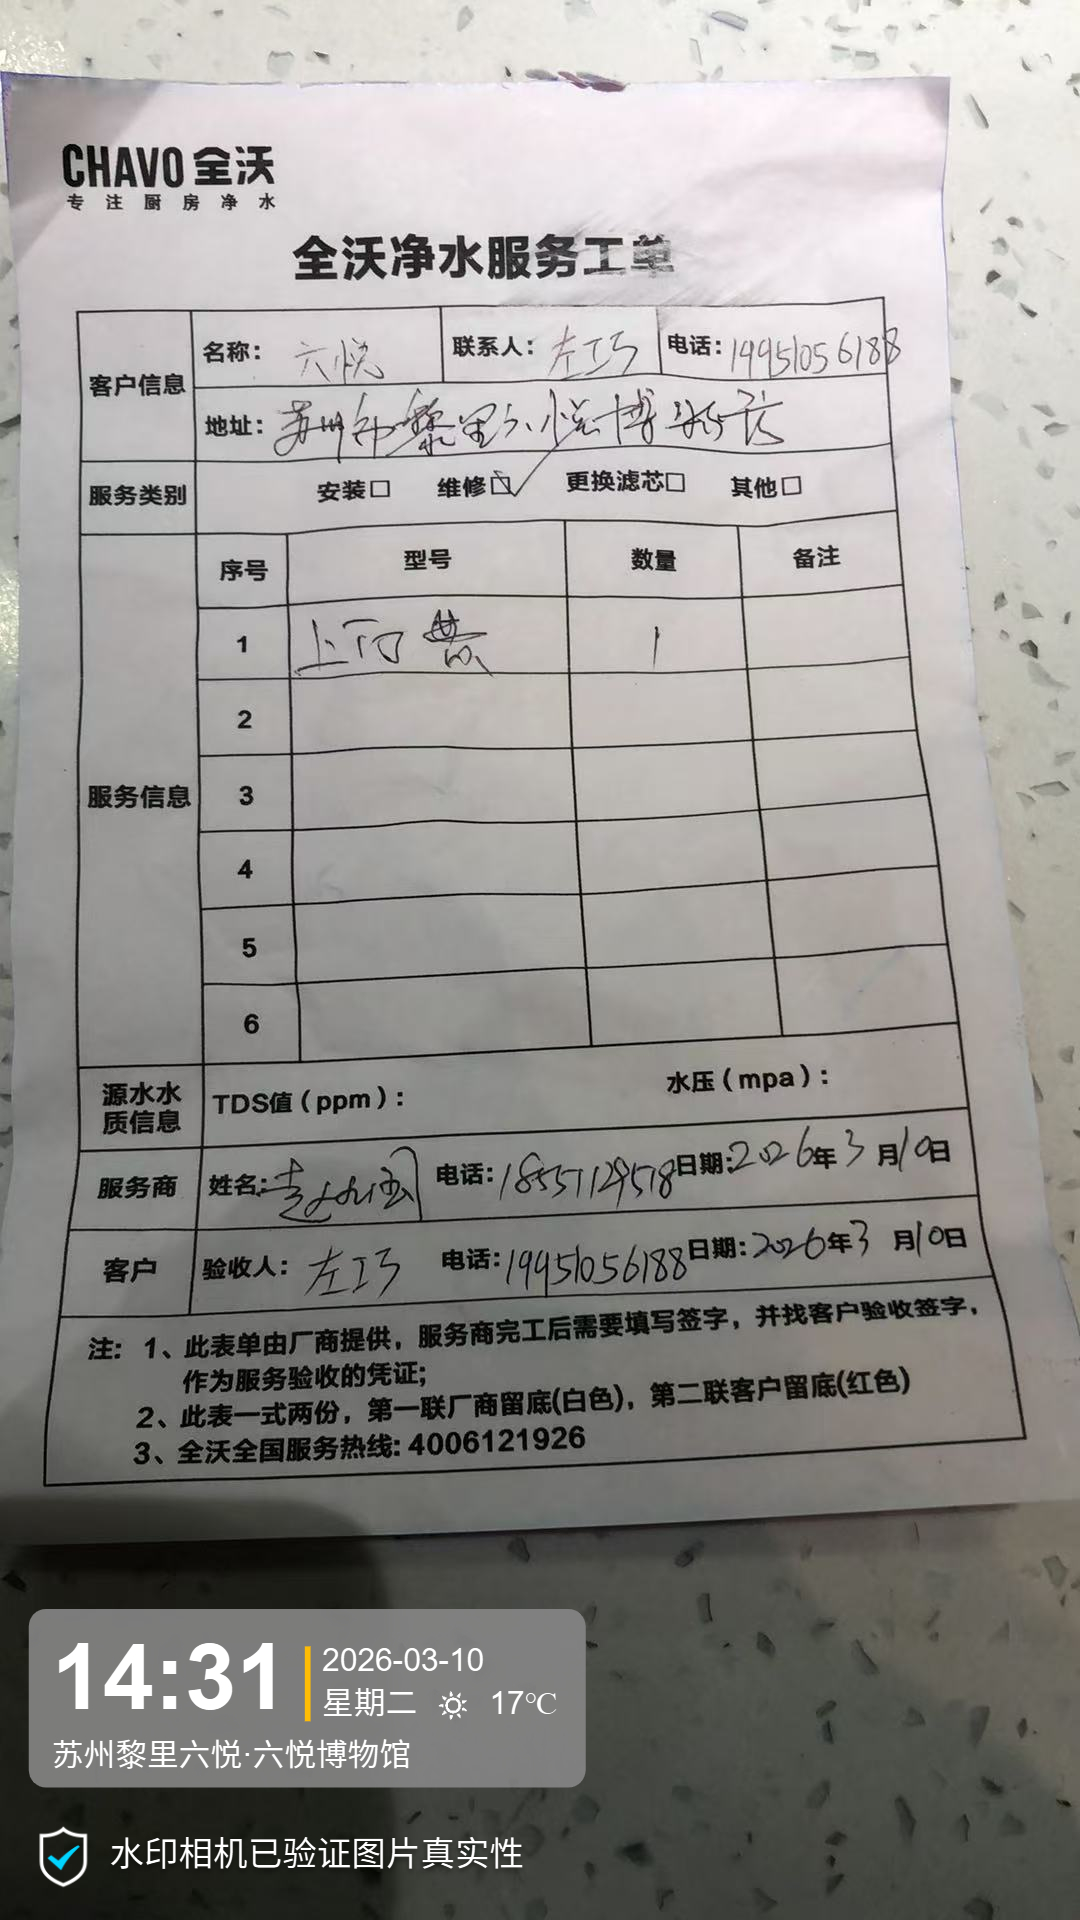 CHAVO 全沃
专注厨房净水
全沃净水服务工单
客户信息 名称: 六悦 联系人: 左工巧 电话: 19951056188
地址: 苏州市黎里六悦博物馆
服务类别 安装□ 维修☑ 更换滤芯□ 其他□
服务信息 序号 型号 数量 备注
1 上 1
2
3
4
5
6
源水水质信息 TDS值(ppm): 水压(mpa):
服务商 姓名: 电话: 18551129518 日期: 2026年3月10日
客户 验收人: 左工巧 电话: 19951056188 日期: 2026年3月10日
注: 1、此表单由厂商提供，服务商完工后需要填写签字，并找客户验收签字，
作为服务验收的凭证;
2、此表一式两份，第一联厂商留底(白色)，第二联客户留底(红色)
3、全沃全国服务热线: 4006121926
14:31 2026-03-10
星期二 17℃
苏州黎里六悦·六悦博物馆
水印相机已验证图片真实性